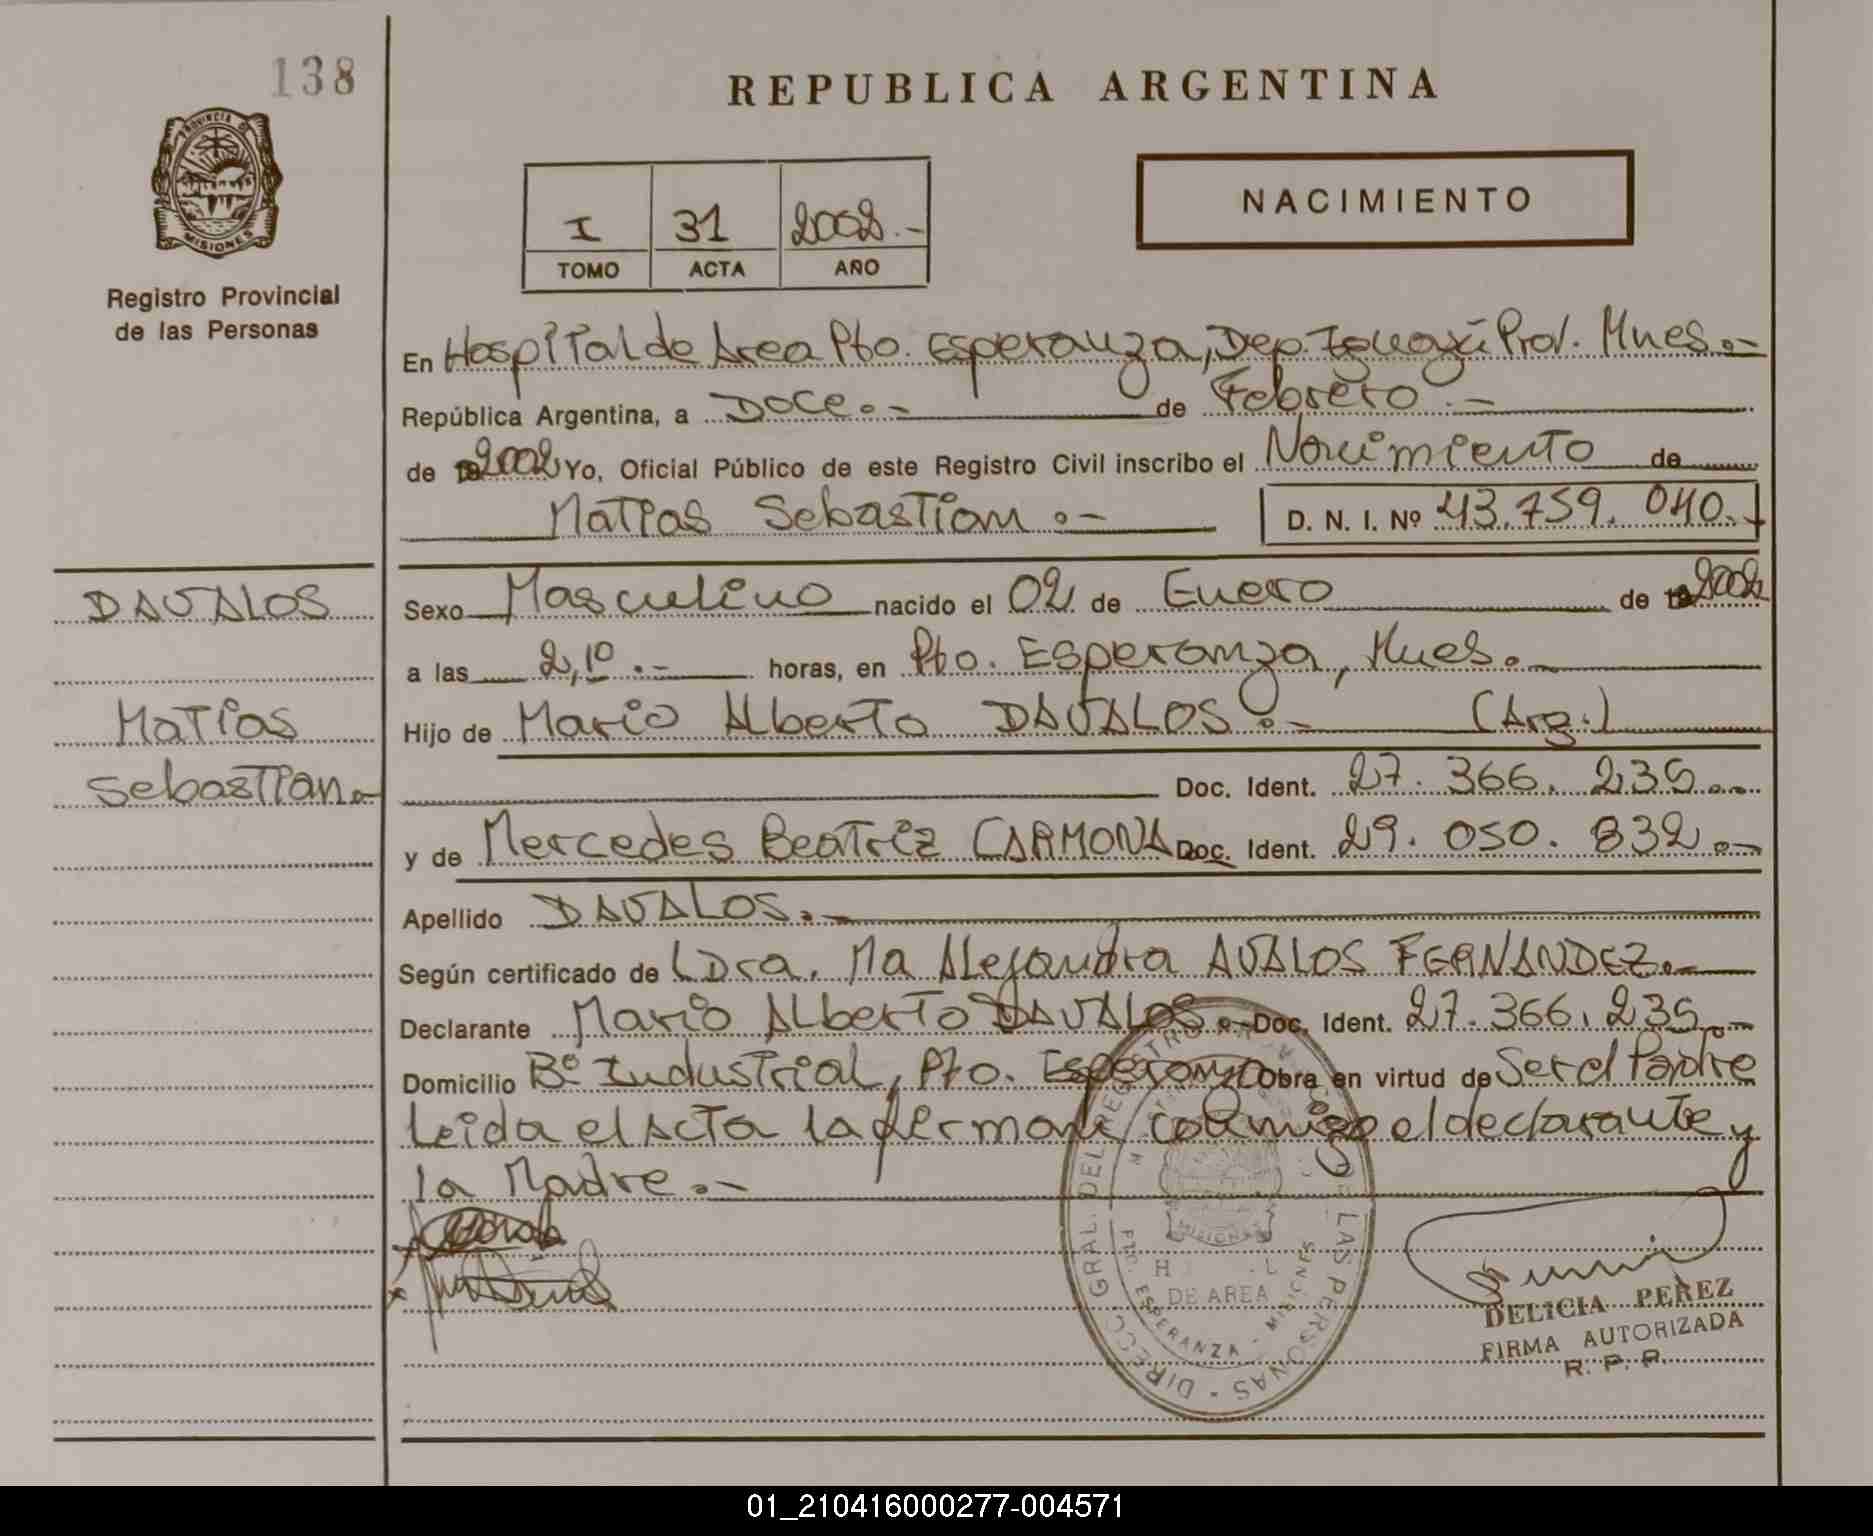 138
REPUBLICA ARGENTINA
PROVINCIA DE
MISIONES
Registro Provincial
de las Personas
I 31 2002.-
TOMO ACTA AÑO
NACIMIENTO
En Hospital de Area Pto. Esperanza, Dep. Iguazú Prov. Mnes.-
República Argentina, a Doce.- de Febrero.-
de 2002 Yo, Oficial Público de este Registro Civil inscribo el Nacimiento de
Matias Sebastian.- D. N. I. Nº 43.759.040.-
DAVALOS
Matias
Sebastian.-
Sexo Masculino nacido el 02 de Enero de 2002
a las 2,10.- horas, en Pto. Esperanza, Mnes.-
Hijo de Mario Alberto DAVALOS.- (Arg.)
Doc. Ident. 27.366.235.-
y de Mercedes Beatriz CARMONA Doc. Ident. 29.050.832.-
Apellido DAVALOS.-
Según certificado de Dra. Ma Alejandra AVALOS FERNANDEZ.-
Declarante Mario Alberto DAVALOS.- Doc. Ident. 27.366.235.-
Domicilio Bº Industrial, Pto. Esperanza Obra en virtud de Ser el Padre
Leida el Acta la firman conmigo el declarante y
la Madre.-
DIRECC. GRAL. DEL REGISTRO DE LAS PERSONAS
MISIONES
DE AREA
PTO. ESPERANZA - MISIONES
DELICIA PEREZ
FIRMA AUTORIZADA
R. P. P.
01_210416000277-004571